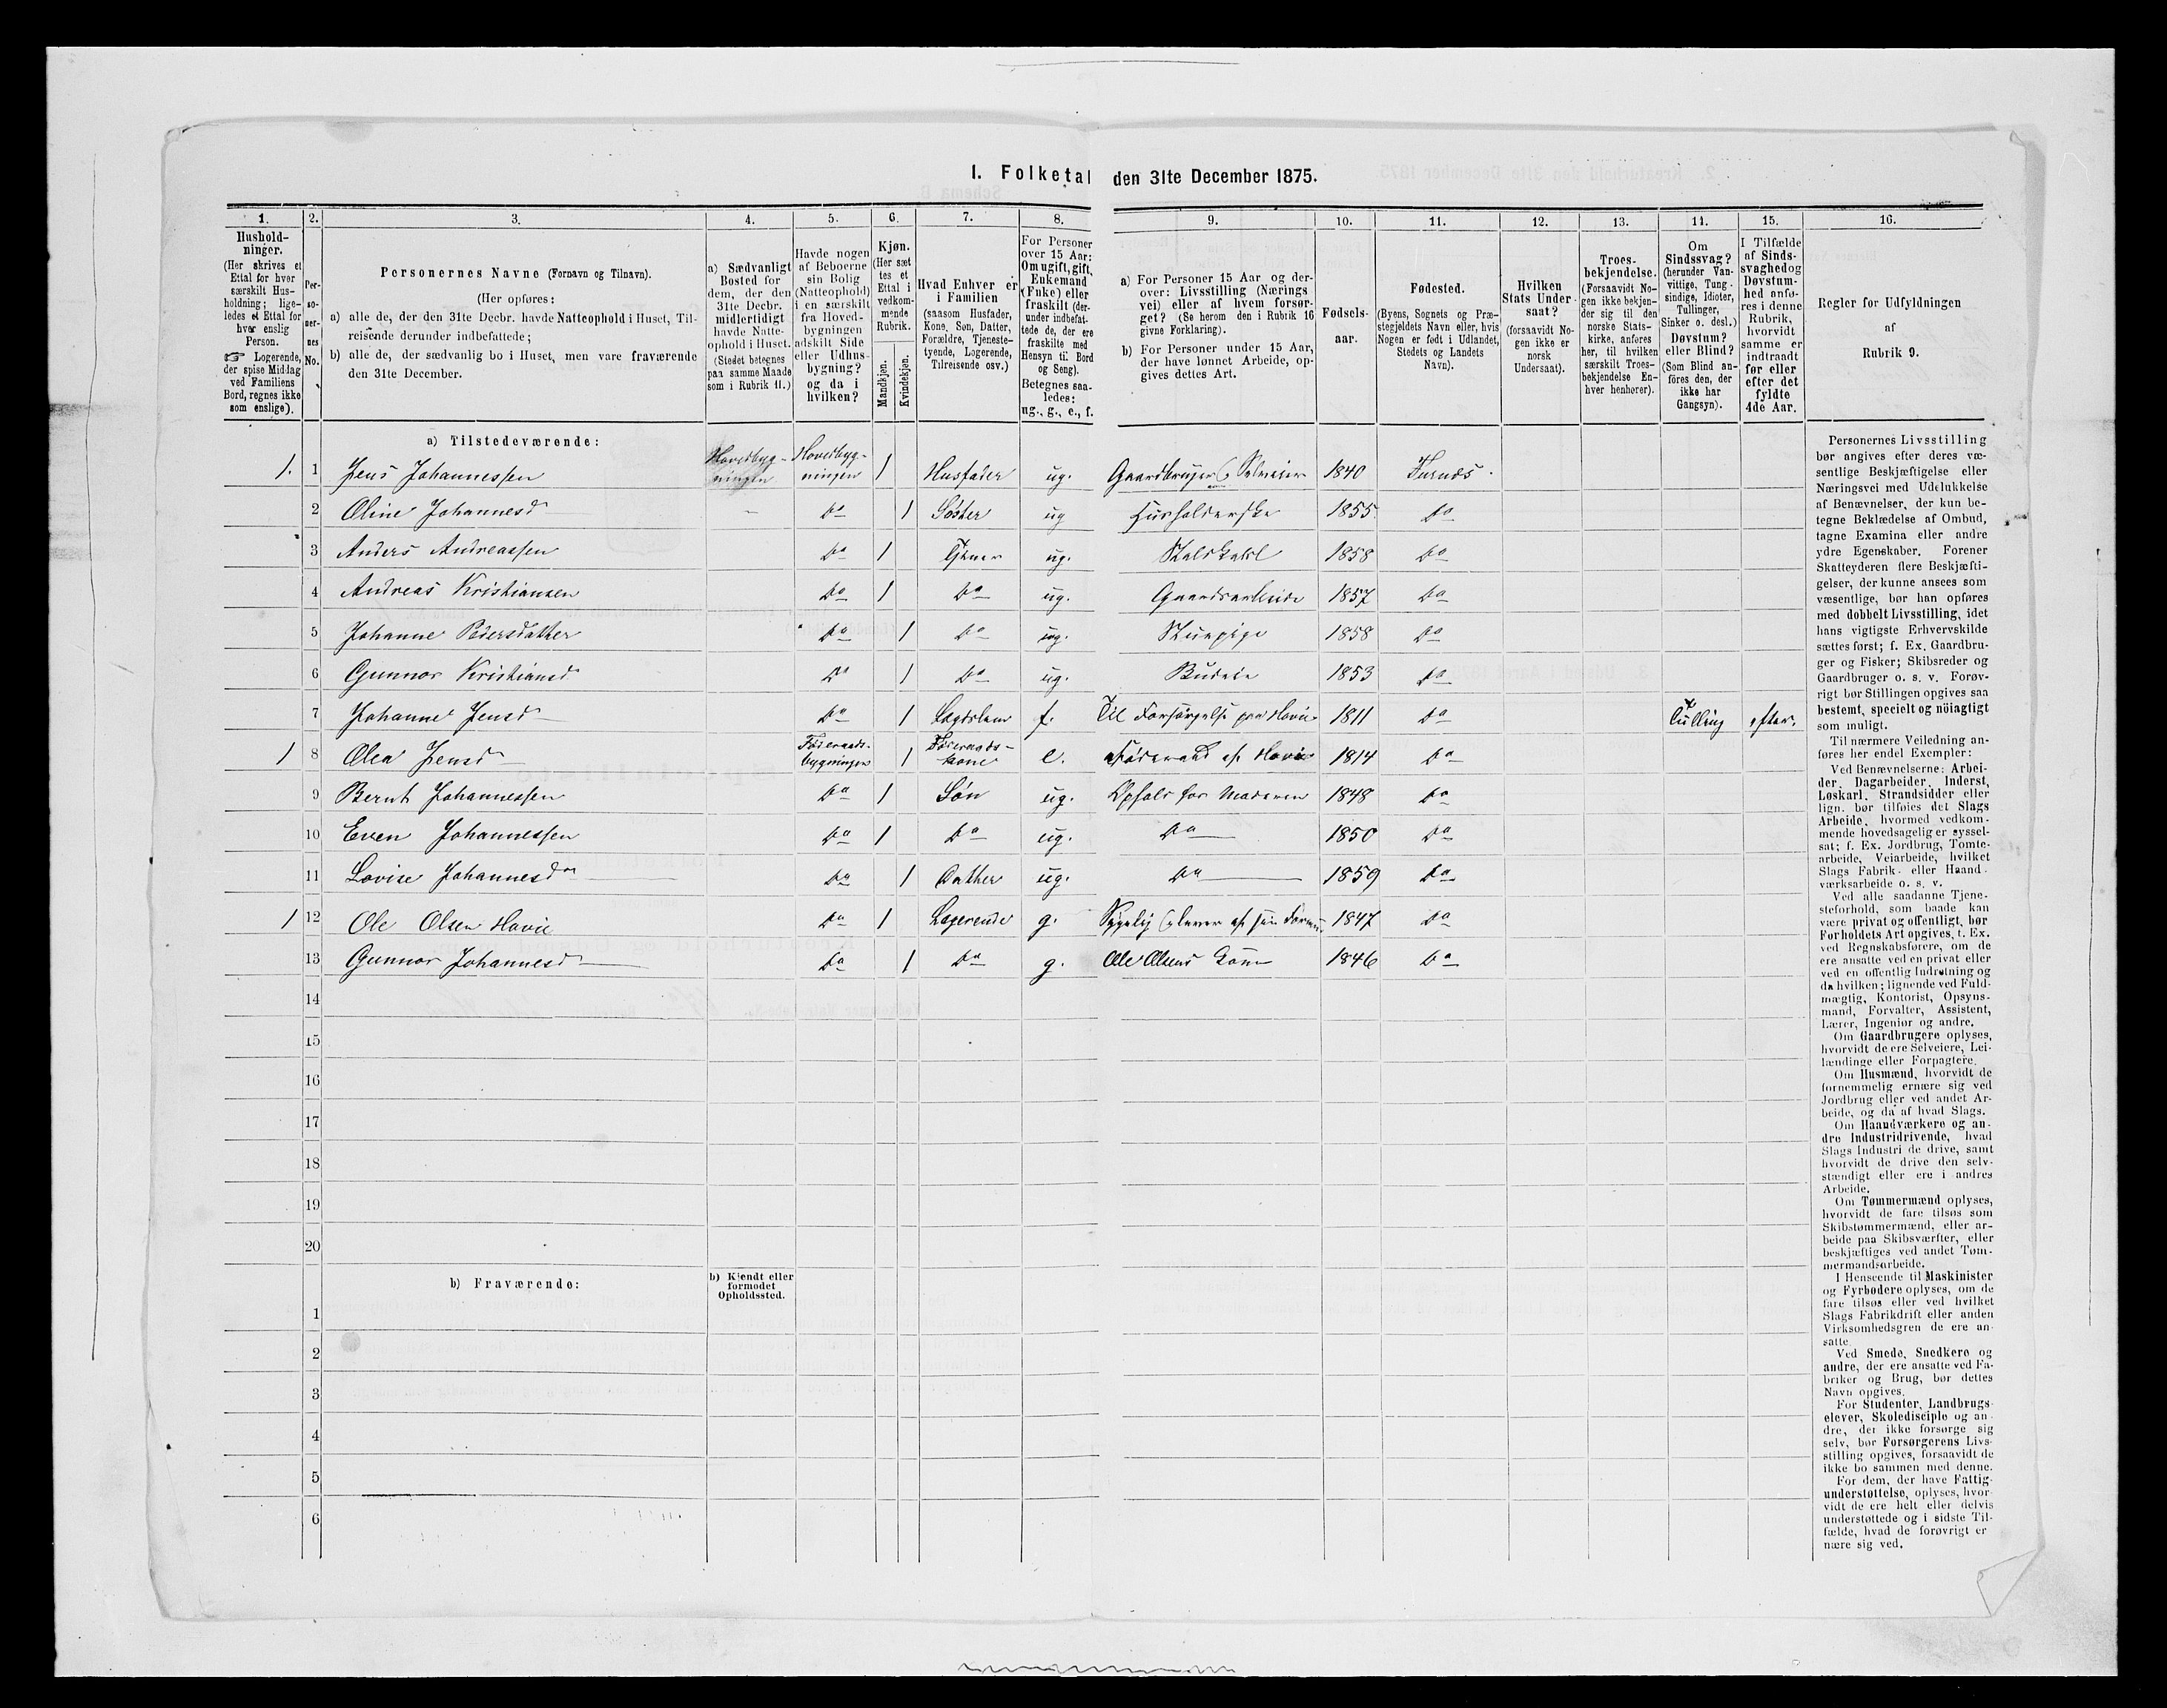 1. Folketal den 31te December 1875.
1. 2. 3. 4. 5. 6. 7. 8. 9. 10. 11. 12. 13. 14. 15. 16.
Hushold-
ninger.
(Her skrives et
Ettal for hver
særskilt Hus-
holdning; lige-
ledes et Ettal for
hver enslig
Person.
☞ Logerende,
der spise Middag
ved Familiens
Bord, regnes ikke
som enslige).
Per-
so-
ner-
nes
No.
Personernes Navne (Fornavn og Tilnavn).
(Her opføres:
a) alle de, der den 31te Decbr. havde Natteophold i Huset, Til-
reisende derunder indbefattede;
b) alle de, der sædvanlig bo i Huset, men vare fraværende
den 31te December.
a) Sædvanligt
Bosted for
dem, der den
31te Decbr.
midlertidigt
havde Natte-
ophold i Huset.
(Stedet betegnes
paa samme Maade
som i Rubrik 11.)
Havde nogen
af Beboerne
sin Bolig
(Natteophold)
i en særskilt
fra Hoved-
bygningen
adskilt Side
eller Udhus-
bygning?
og da i
hvilken?
Kjøn.
(Her sæt
tes et
Ettal i
vedkom-
mende
Rubrik.
Mandkjøn.
Kvindekjøn.
Hvad Enhver er
i Familien
(saasom Husfader,
Kone, Søn, Datter,
Forældre, Tjeneste-
tyende, Logerende,
Tilreisende osv.)
For Personer
over 15 Aar:
Om ugift, gift,
Enkemand
(Enke) eller
fraskilt (der-
under indbefat-
tede de, der ere
fraskilte med
Hensyn til Bord
og Seng).
Betegnes saa-
ledes:
ug., g., e., f.
a) For Personer 15 Aar og der-
over: Livsstilling (Nærings
vei) eller af hvem forsør-
get? (Se herom den i Rubrik 16
givne Forklaring).
b) For Personer under 15 Aar,
der have lønnet Arbeide, op-
gives dettes Art.
Fødsels-
aar.
Fødested.
(Byens, Sognets og Præ-
stegjeldets Navn eller, hvis
Nogen er født i Udlandet,
Stedets og Landets
Navn).
Hvilken
Stats Under-
saat?
(forsaavidt No-
gen ikke er
norsk
Undersaat).
Troes-
bekjendelse.
(Forsaavidt No-
gen ikke bekjen-
der sig til den
norske Stats-
kirke, anføres
her, til hvilken
særskilt Troes-
bekjendelse En-
hver henhører).
Om
Sindssvag?
(herunder Van-
vittige, Tung-
sindige, Idioter,
Tullinger,
Sinker o. desl.)
Døvstum?
eller Blind?
(Som Blind an-
føres den, der
ikke har
Gangsyn).
I Tilfælde
af Sinds-
svaghed og
Døvstum-
hed anfø-
res i denne
Rubrik,
hvorvidt
samme er
indtraadt
før eller
efter det
fyldte
4de Aar.
Regler for Udfyldningen
af
Rubrik 9.
a) Tilstedeværende:
1. 1 Jens Johannessen Hovedbyg-ningen Hovedbyg-ningen 1 Husfader ug. Gaardbruger, Selveier 1840 Furnæs.
2 Oline Johannesd — Do 1 Søster ug Husholderske 1855 Do
3 Anders Andreassen Do 1 Tjener ug. Staldkarl 1858 Do
4 Andreas Kristiansen Do 1 Do ug. Gaardsarbeide 1857 Do
5 Johanne Pedersdatter Do 1 Do ug. Stuepige 1858 Do
6 Gunnor Kristiansd Do 1 Do ug. Budeie 1853 Do
7 Johanne Jensd Do 1 Lægdslem f. Til Forsørgelse paa Hovie 1811 Do Tulling efter.
1 8 Olea Jensd Føderaads-bygningen 1 Føderaads-kone e. Føderaad af Hovie 1814 Do
9 Bernt Johannessen Do 1 Søn ug. Ophold hos Moderen 1848 Do
10 Even Johannessen Do 1 Do ug. Do 1850 Do
11 Lovise Johannesdtr Do 1 Datter ug. Do 1859 Do
1 12 Ole Olsen Hovie Do 1 Logerende g. Sygelig, lever af sin Formue 1847 Do
13 Gunnor Johannesd Do 1 Do g. Ole Olsens Kone 1846 Do
14
15
16
17
18
19
20
b) Fraværende:
b) Kjendt eller
formodet
Opholdssted.
1
2
3
4
5
6
Personernes Livsstilling
bør angives efter deres væ-
sentlige Beskjæftigelse eller
Næringsvei med Udelukkelse
af Benævnelser, der kun be-
tegne Beklædelse af Ombud,
tagne Examina eller andre
ydre Egenskaber. Forener
Skatteyderen flere Beskjæfti-
gelser, der kunne ansees som
væsentlige, bør han opføres
med dobbelt Livsstilling, idet
hans vigtigste Erhvervskilde
sættes først; f. Ex. Gaardbru-
ger og Fisker; Skibsreder og
Gaardbruger o. s. v. Forøv-
rigt bør Stillingen opgives saa
bestemt, specielt og nöiagtigt
som muligt.
Til nærmere Veiledning an-
føres her endel Exempler:
Ved Benævnelserne: Arbei-
der, Dagarbeider, Inderst,
Løskarl, Strandsidder eller
lign. bør tilføies det Slags
Arbeide, hvormed vedkom-
mende hovedsagelig er syssel-
sat; f. Ex. Jordbrug, Tomte-
arbeide, Veiarbeide, hvilket
Slags Fabrik- eller Haand-
værksarbeide o. s. v.
Ved alle saadanne Tjene-
steforhold, som baade kan
være privat og offentligt, bør
Forholdets Art opgives, t. Ex.
ved Regnskabsførere, om de
ere ansatte ved en privat eller
ved en offentlig Indretning og
da hvilken; lignende ved Fuld-
mægtig, Kontorist, Opsyns-
mand, Forvalter, Assistent,
Lærer, Ingeniør og andre.
Om Gaardbrugere oplyses,
hvorvidt de ere Selveiere, Lei-
lændinge eller Forpagtere.
Om Husmænd, hvorvidt de
fornemmelig ernære sig ved
Jordbrug eller ved andet Ar-
beide, og da af hvad Slags.
Om Haandværkere og an-
dre Industridrivende, hvad
Slags Industri de drive, samt
hvorvidt de drive den selv-
stændigt eller ere i andres
Arbeide.
Om Tømmermænd oplyses,
hvorvidt de fare tilsøs som
Skibstømmermænd, eller ar-
beide paa Skibsværfter, eller
beskjæftiges ved andet Tøm-
mermandsarbeide.
I Henseende til Maskinister
og Fyrbødere oplyses, om de
fare tilsøs eller ved hvilket
Slags Fabrikdrift eller anden
Virksomhedsgren de ere an-
satte.
Ved Smede, Snedkere og
andre, der ere ansatte ved Fa-
briker og Brug, bør dettes
Navn opgives.
For Studenter, Landbrugs-
elever, Skoledisciple og an-
dre, der ikke forsørge sig
selv, bør Forsørgerens Livs-
stilling opgives, forsaavidt de
ikke bo sammen med denne.
For dem, der have Fattig-
understøttelse, oplyses, hvor-
vidt de ere helt eller delvis
understøttede og i sidste Til-
fælde, hvad de forøvrigt er
nære sig ved.